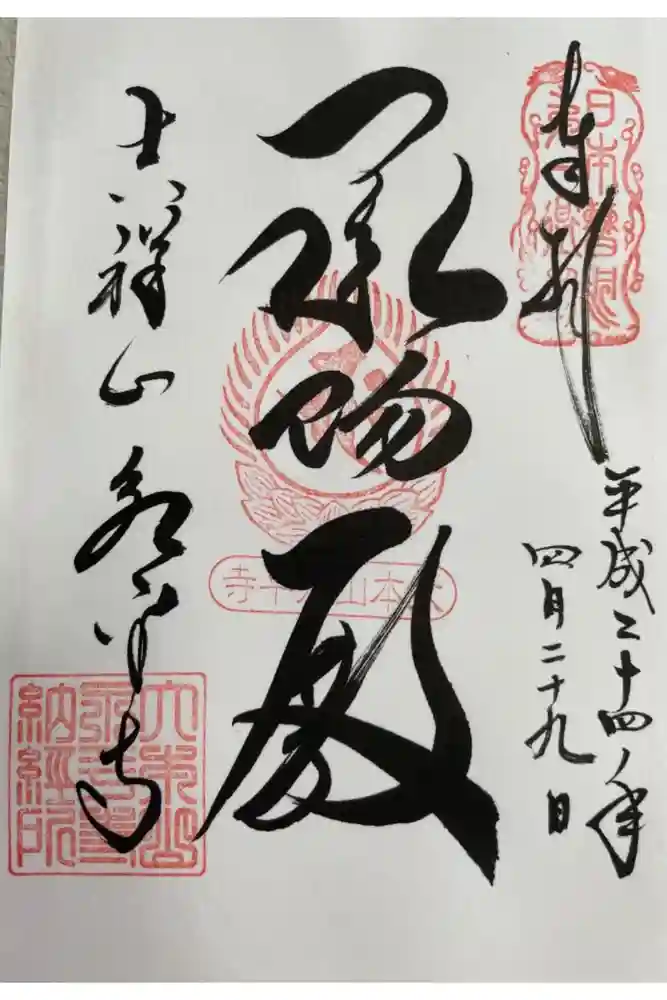 奉拝
日本曹洞
平成二十四年
四月二十九日
承陽殿
大本山永平寺
吉祥山永平寺
大本山
永平寺
納経所